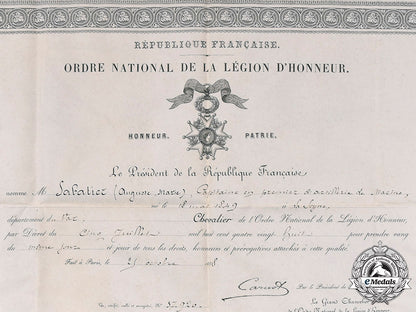 RÉPUBLIQUE FRANÇAISE.
ORDRE NATIONAL DE LA LÉGION D'HONNEUR.
HONNEUR. PATRIE.
Le Président de la République Française
nomme M Sabatier (Auguste Marie), Capitaine en premier d'artillerie de Marine,
né le 1849 à La Seyne
département du Var Chevalier de l'Ordre National de la Légion d'Honneur,
par Décret du Cinq Juillet mil huit cent quatre vingt huit pour prendre rang
du même jour jouir de tous les droits, honneurs et prérogatives attachés à cette qualité.
Fait à Paris, le octobre
Carnot Par le Président de
Vu, vérifié, scellé et enregistré N°
Le Grand Chancelier
de l'Ordre National de la Légion d'Honneur
eMedals